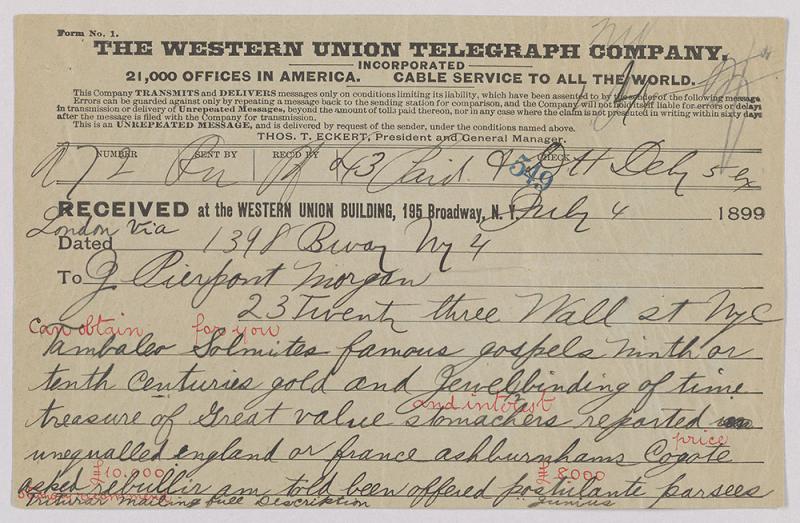 Form No. 1.
THE WESTERN UNION TELEGRAPH COMPANY.
INCORPORATED
21,000 OFFICES IN AMERICA. CABLE SERVICE TO ALL THE WORLD.
This Company TRANSMITS and DELIVERS messages only on conditions limiting its liability, which have been assented to by the sender of the following message
Errors can be guarded against only by repeating a message back to the sending station for comparison, and the Company will not hold itself liable for errors or delays
in transmission or delivery of Unrepeated Messages, beyond the amount of tolls paid thereon, nor in any case where the claim is not presented in writing within sixty days
after the message is filed with the Company for transmission.
This is an UNREPEATED MESSAGE, and is delivered by request of the sender, under the conditions named above.
THOS. T. ECKERT, President and General Manager.
NUMBER SENT BY REC'D BY CHECK
43 Paid. Dely 5 ex
549
RECEIVED at the WESTERN UNION BUILDING, 195 Broadway, N. Y. July 4 1899
London Via
Dated 1398 Bway Ny 4
To J Pierpont Morgan
23 Twenty three Wall st NyC
can obtain for you
Tambaleo Solmites famous gospels ninth or
tenth centuries gold and Jewell binding of time
and interest
treasure of Great value stomachers reported
unequalled england or france ashburnhams Cogote
price
asked rebullir am told been offered postulante parsees
£10,000 £8000
strongly recommend
vitivrar mailing full Description Junius